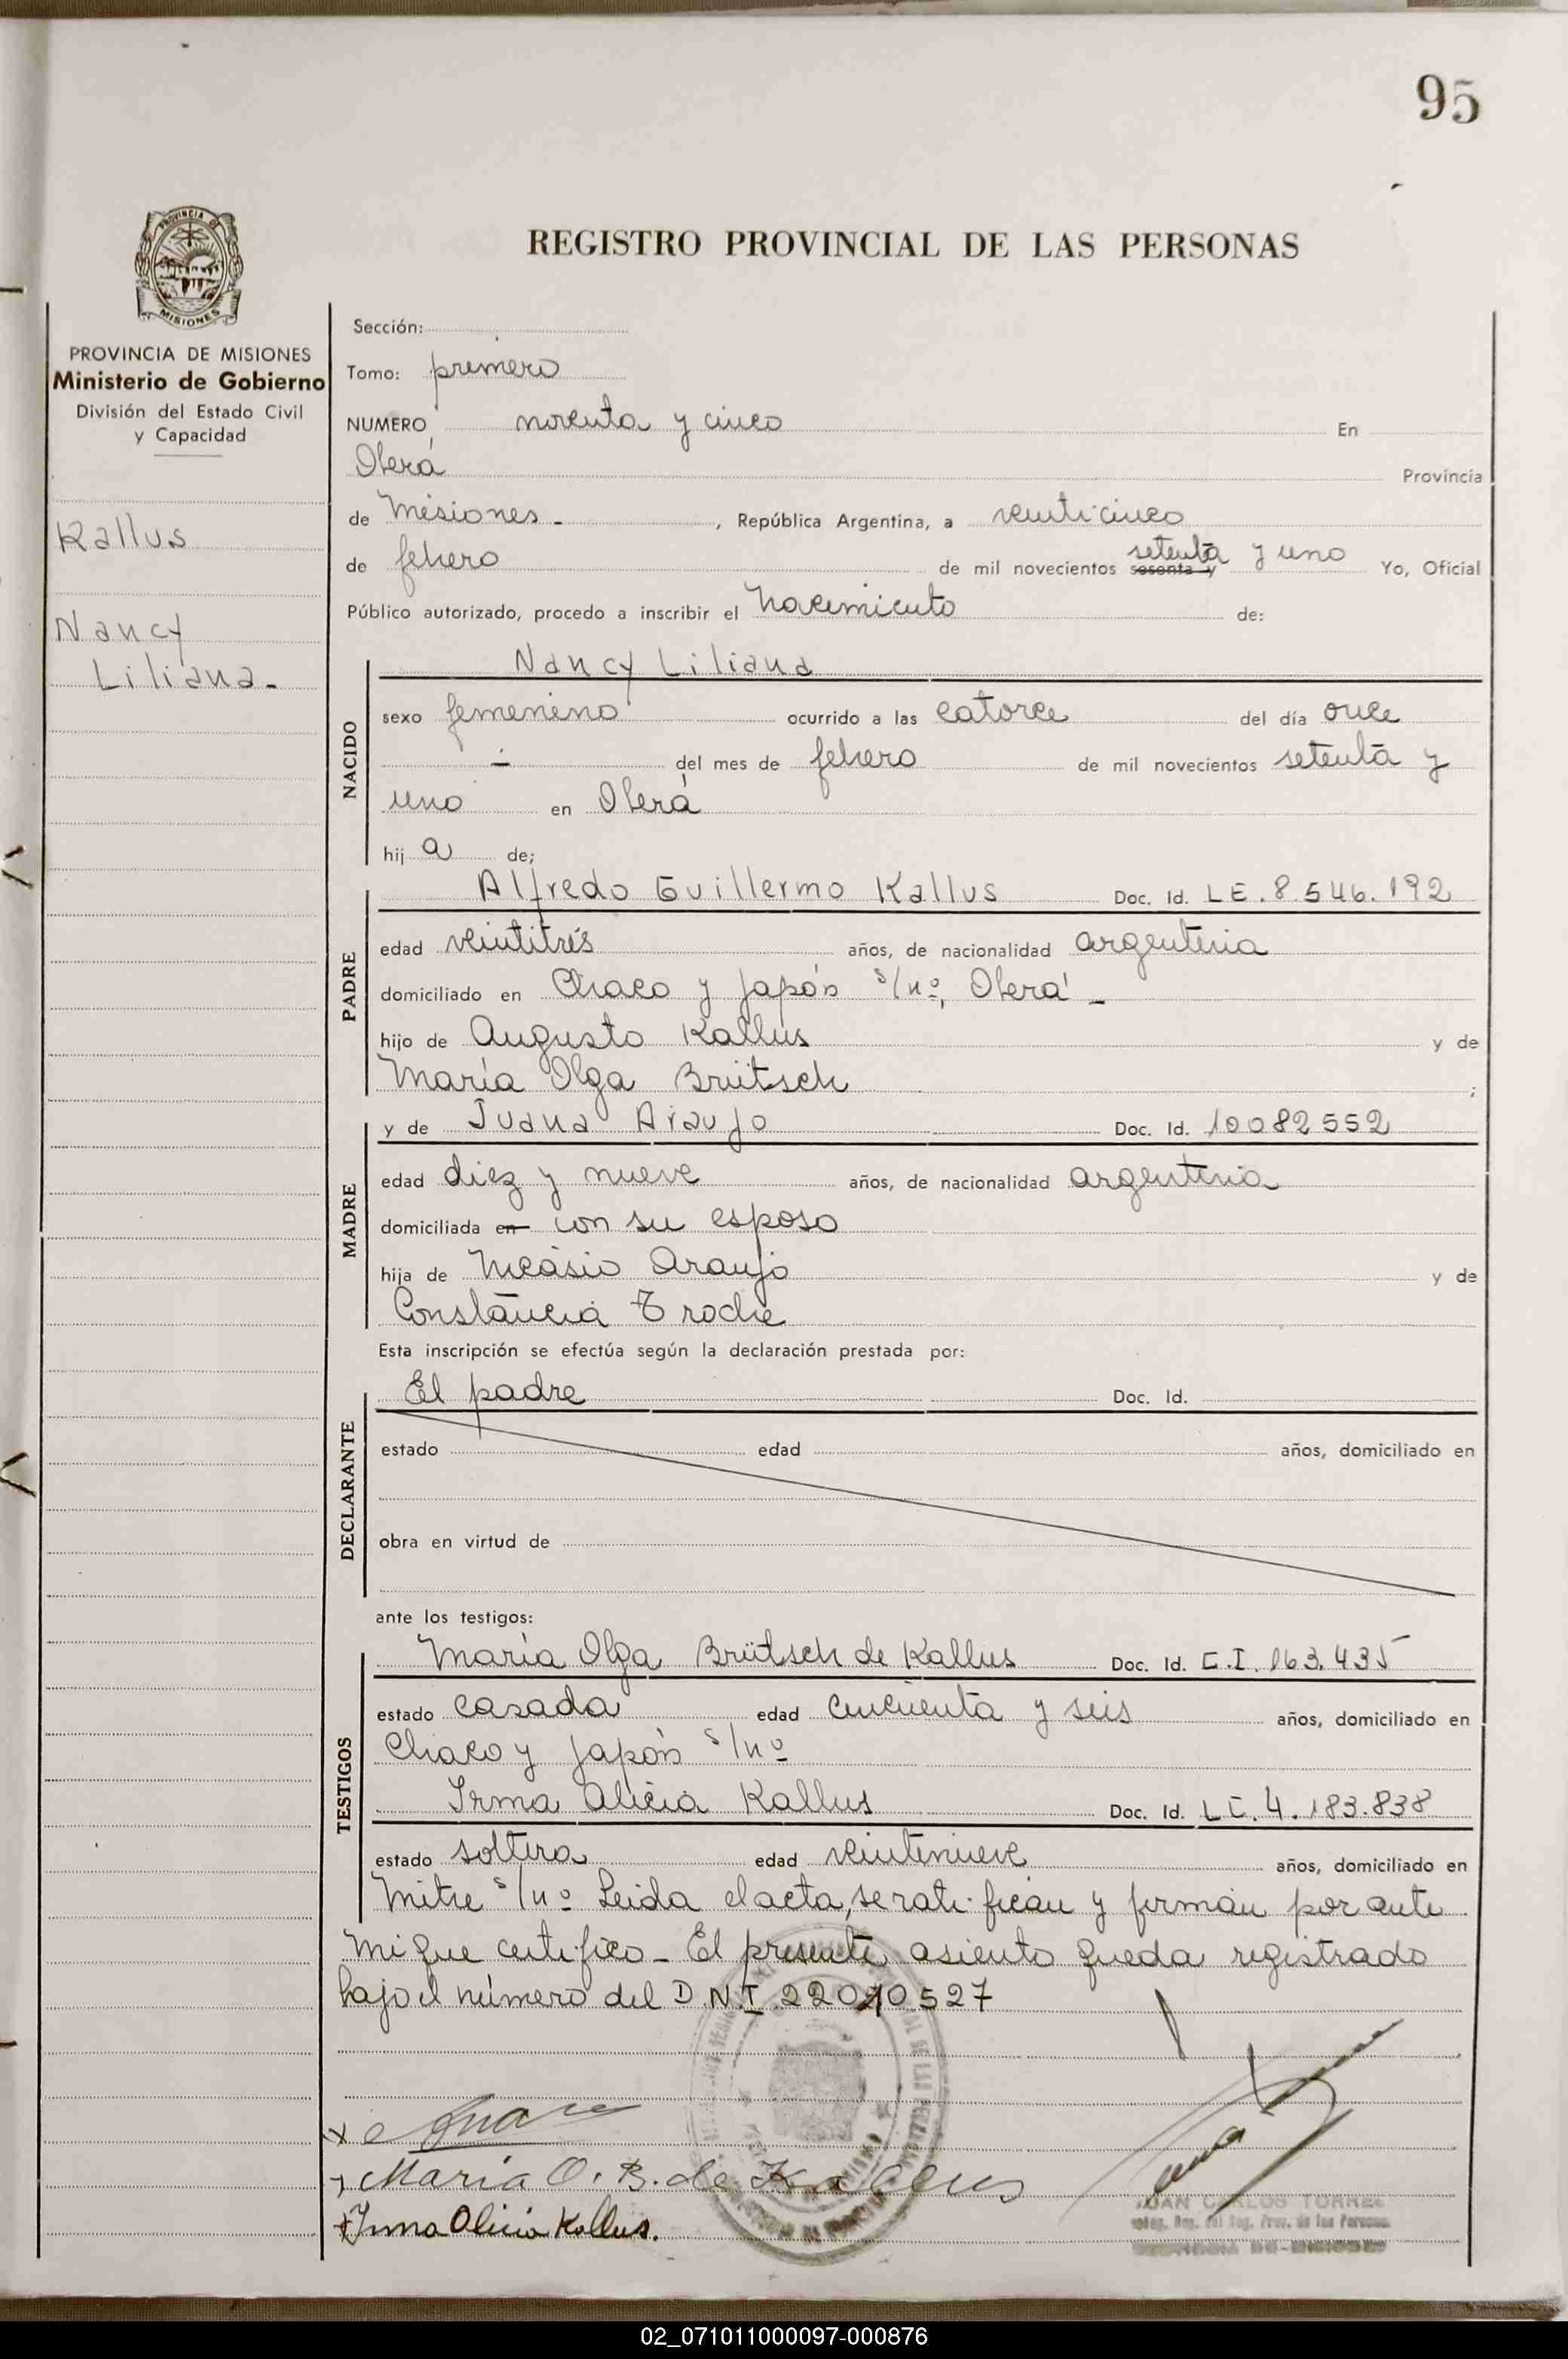 95
PROVINCIA DE
MISIONES
PROVINCIA DE MISIONES
Ministerio de Gobierno
División del Estado Civil
y Capacidad
Kallus
Nancy
Liliana-
REGISTRO PROVINCIAL DE LAS PERSONAS
Sección:
Tomo: primero
NUMERO noventa y cinco En
Oberá Provincia
de Misiones - , República Argentina, a veinticinco
de febrero de mil novecientos sesenta y setenta y uno Yo, Oficial
Público autorizado, procedo a inscribir el nacimiento de:
NACIDO
Nancy Liliana
sexo femenino ocurrido a las catorce del día once
- del mes de febrero de mil novecientos setenta y
uno en Oberá
hij a de;
PADRE
Alfredo Guillermo Kallus Doc. Id. LE. 8.546.192
edad veintitrés años, de nacionalidad argentina
domiciliado en Chaco y Japón s/nº, Oberá -
hijo de Augusto Kallus y de
María Olga Brütsch ;
MADRE
y de Juana Araujo Doc. Id. 10082552
edad diez y nueve años, de nacionalidad argentina
domiciliada en con su esposo
hija de Nicasio Araujo y de
Constancia Troche
Esta inscripción se efectúa según la declaración prestada por:
DECLARANTE
El padre Doc. Id.
estado edad años, domiciliado en
obra en virtud de
ante los testigos:
TESTIGOS
María Olga Brütsch de Kallus Doc. Id. C.I. 163.435
estado casada edad cincuenta y seis años, domiciliado en
Chaco y Japón s/nº
Irma Alicia Kallus Doc. Id. LC. 4.183.838
estado soltera edad veintinueve años, domiciliado en
Mitre s/nº Leida el acta, se ratifican y firman por ante
mi que certifico - El presente asiento queda registrado
bajo el número del D.N.I 22010527
María O. B. de Kallus
Irma Alicia Kallus.
JUAN CARLOS TORRES
02_071011000097-000876